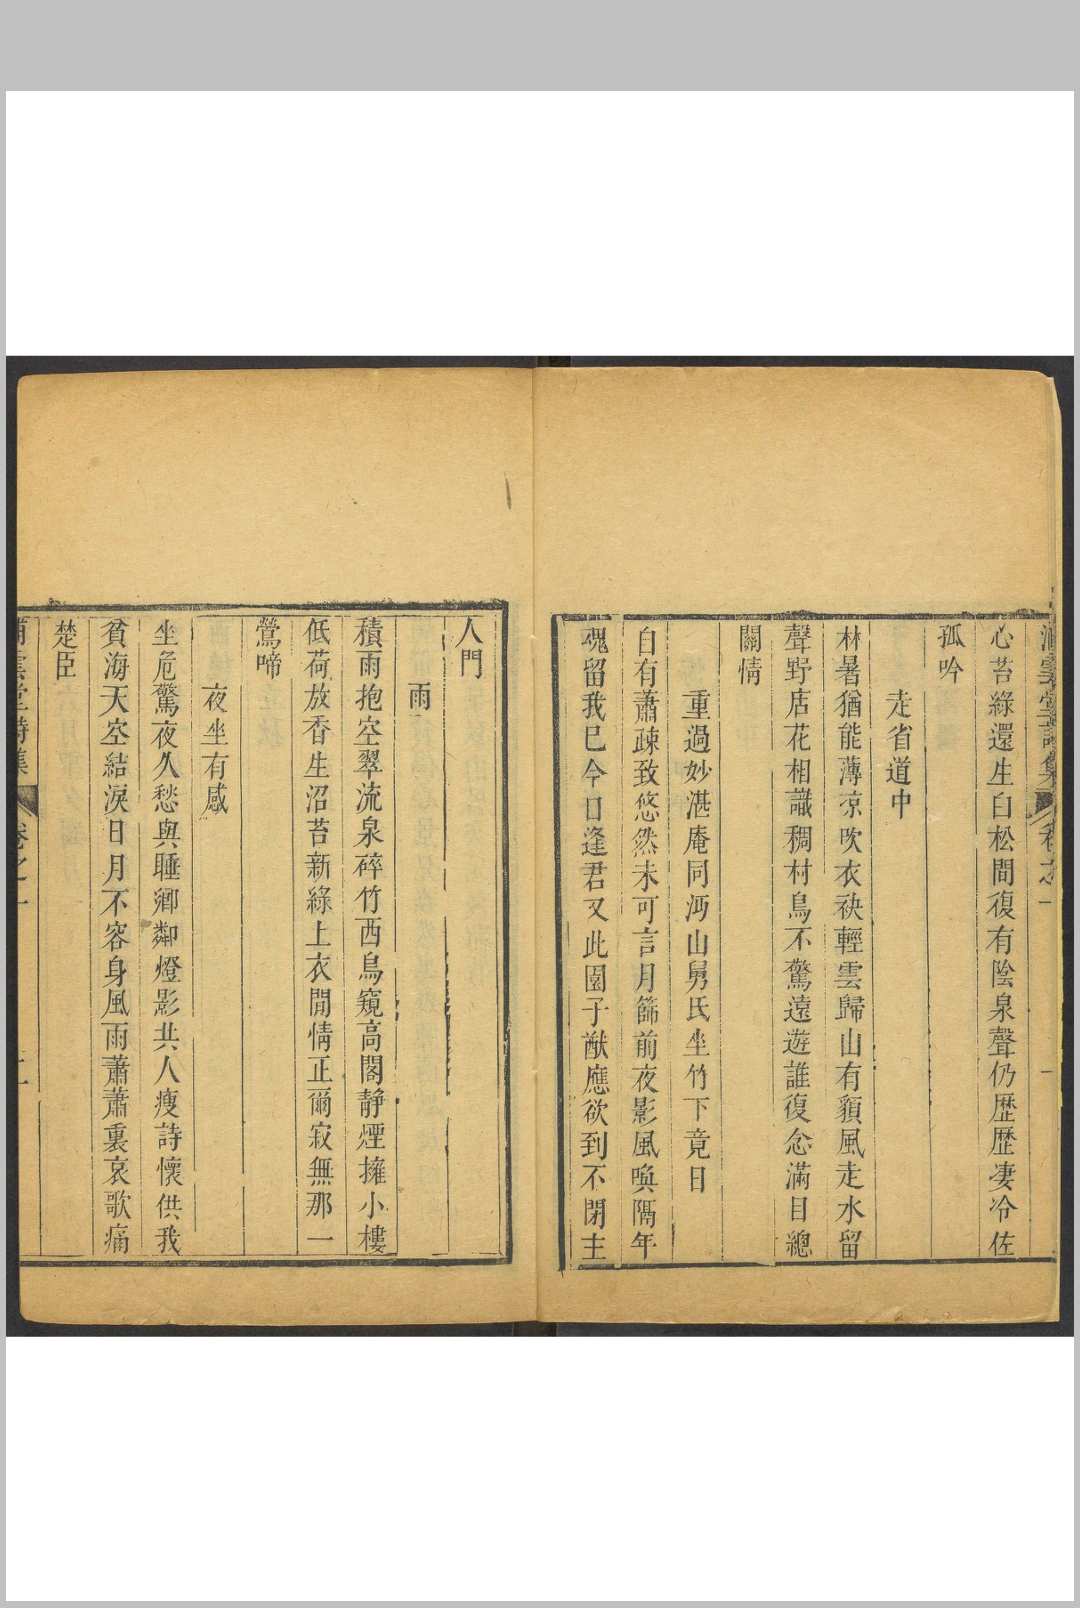 心苔綠還生白松間復有陰泉聲仍歷歷凄冷佐
孤吟
走省道中
林暑猶能薄凉吹衣袂輕雲歸山有額風走水留
聲野店花相識稠村鳥不驚遠遊誰復念滿目總
關情
重過妙湛庵同沔山舅氏坐竹下竟日
自有蕭疎致悠然未可言月篩前夜影風喚隔年
魂留我已今日逢君又此園子猷應欲到不閉主
人門
雨
積雨抱空翠流泉碎竹西鳥窺高閣靜煙擁小樓
低荷放香生沼苔新綠上衣閒情正爾寂無那一
鶯啼
夜坐有感
坐危驚夜久愁與睡鄉鄰燈影共人瘦詩懷供我
貧海天空結淚日月不容身風雨蕭蕭裏哀歌痛
楚臣
雲堂詩集 卷之一